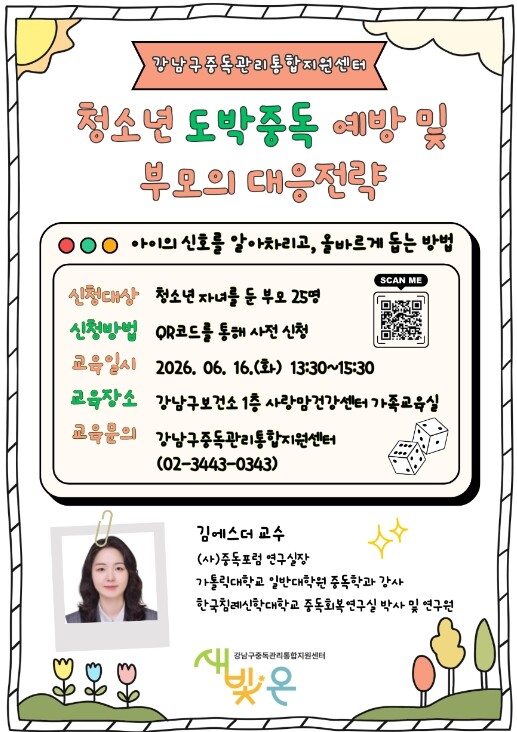 강남구중독관리통합지원센터
청소년 도박중독 예방 및
부모의 대응전략
아이의 신호를 알아차리고, 올바르게 돕는 방법
SCAN ME
신청대상 청소년 자녀를 둔 부모 25명
신청방법 QR코드를 통해 사전 신청
교육일시 2026. 06. 16.(화) 13:30~15:30
교육장소 강남구보건소 1층 사랑맘건강센터 가족교육실
교육문의 강남구중독관리통합지원센터
(02-3443-0343)
김에스더 교수
(사)중독포럼 연구실장
가톨릭대학교 일반대학원 중독학과 강사
한국침례신학대학교 중독회복연구실 박사 및 연구원
강남구중독관리통합지원센터
새빛온